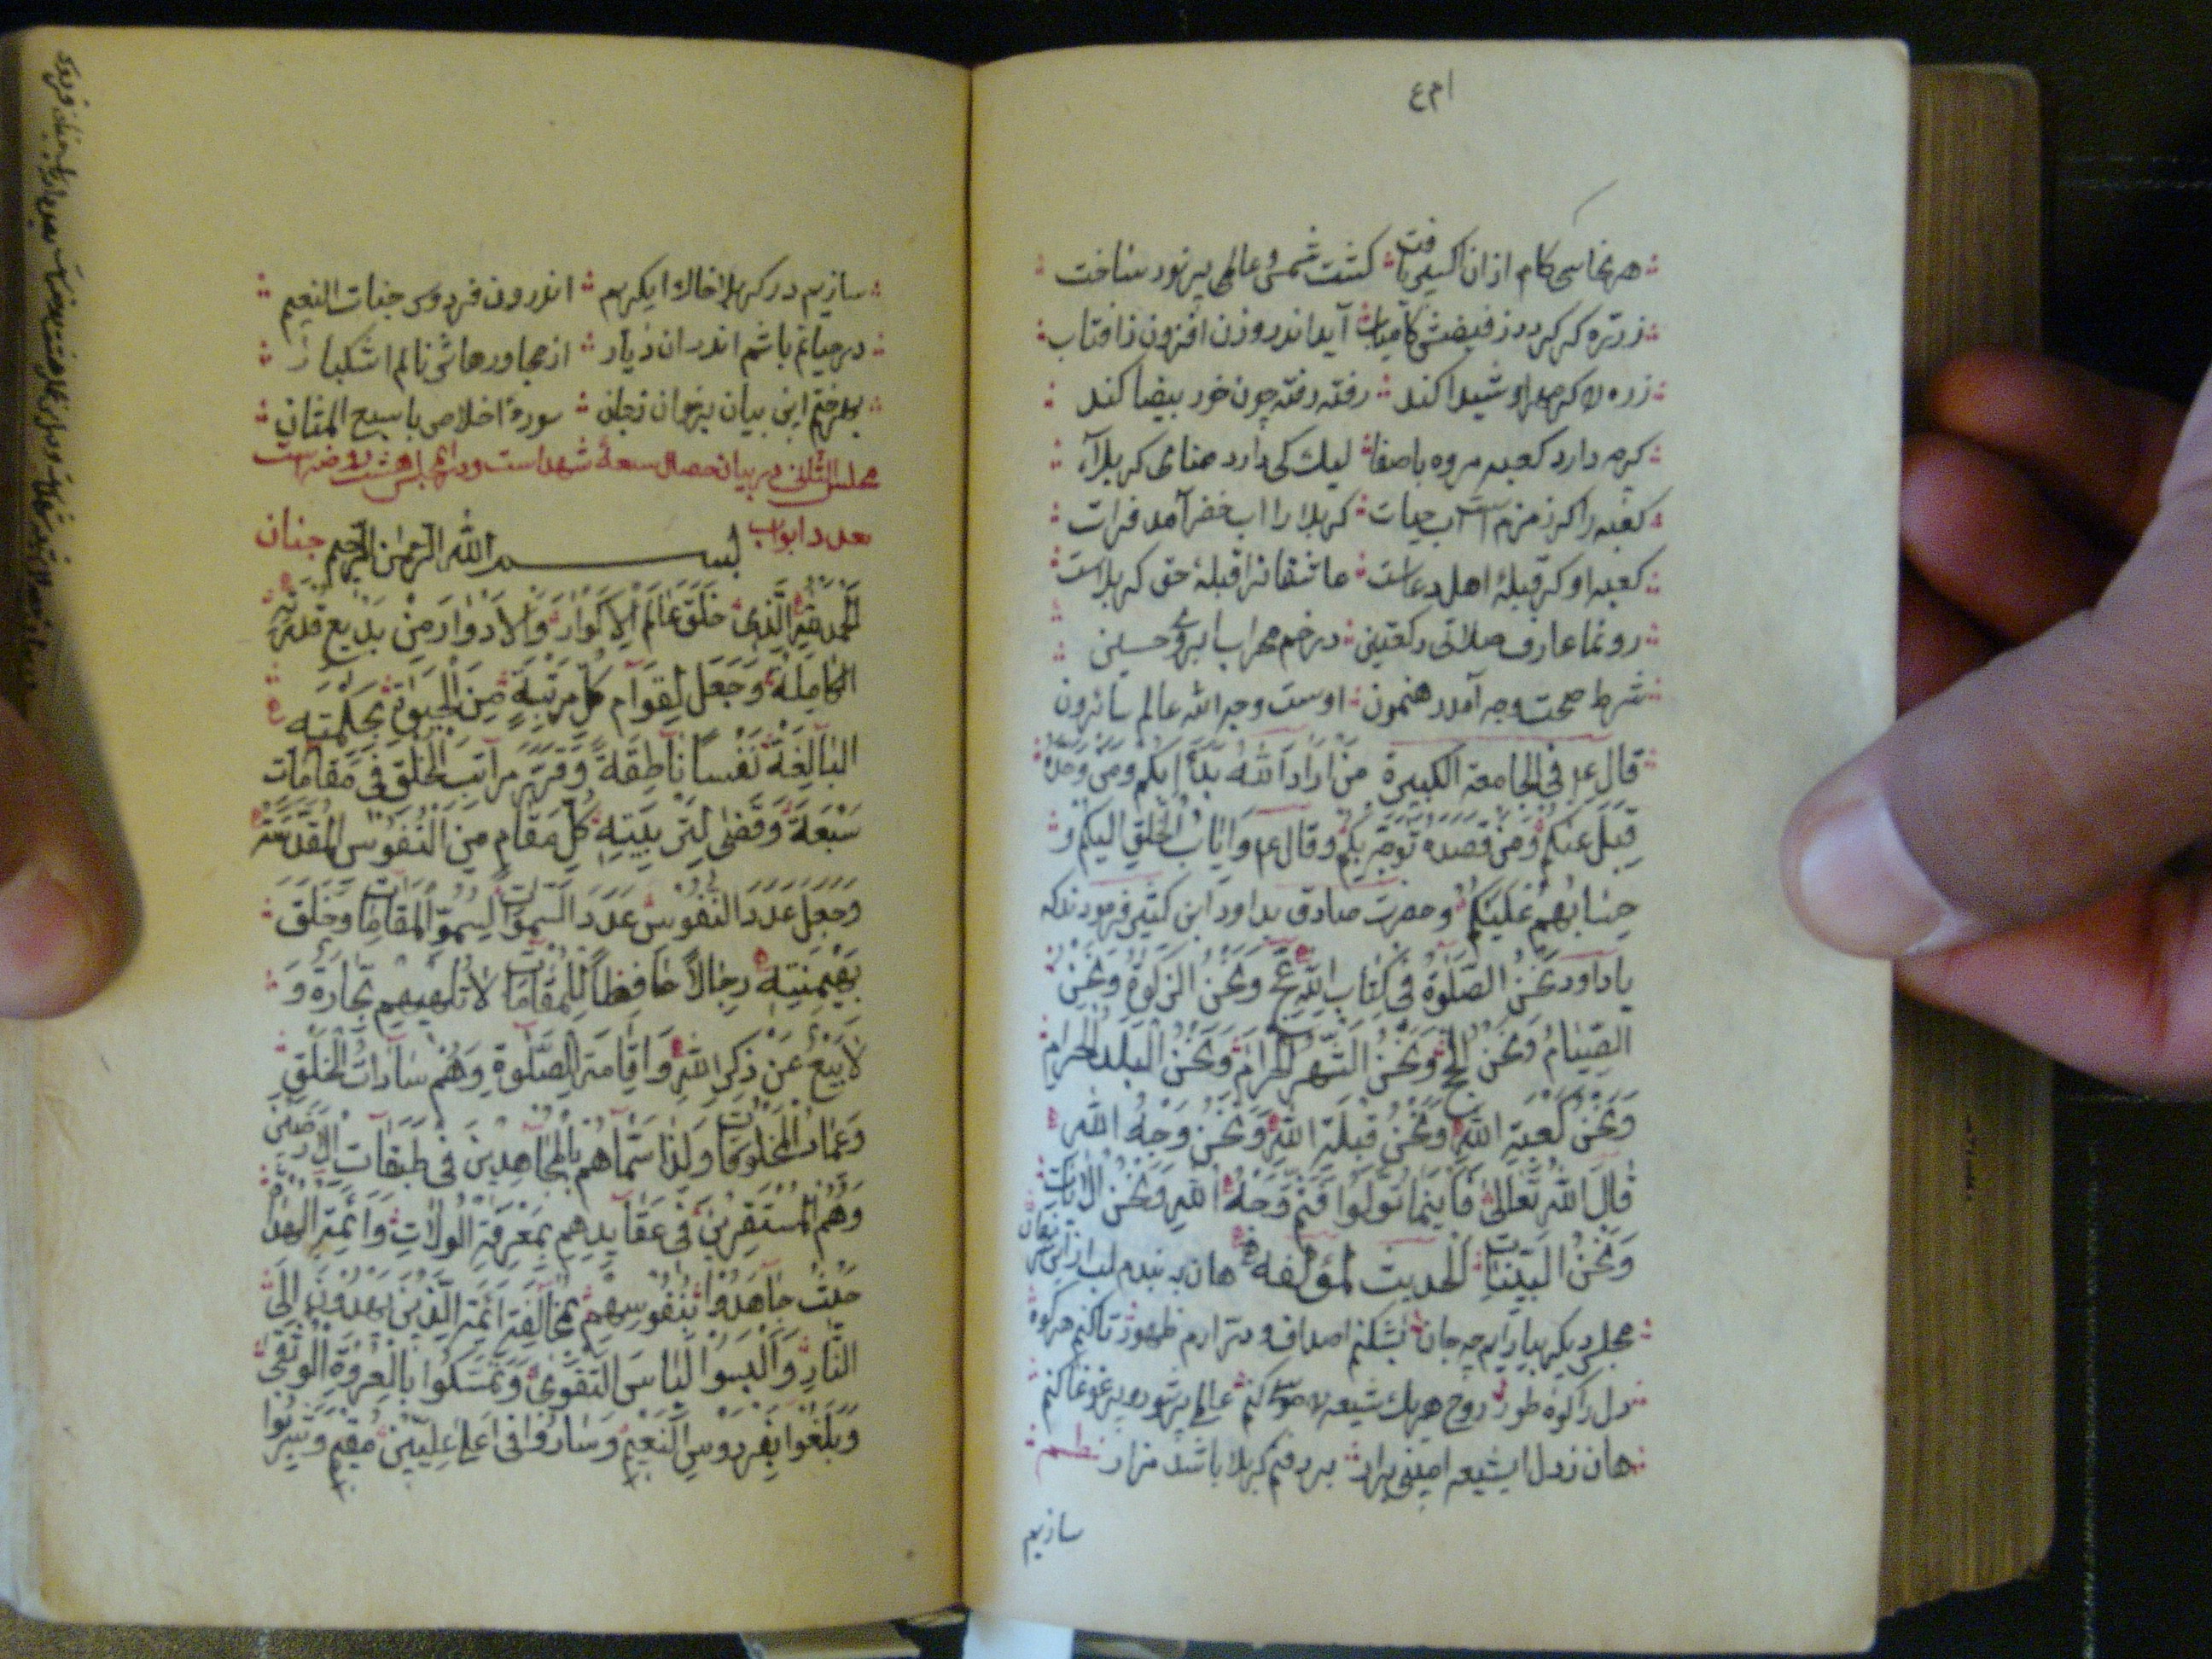 هر نحاسی کام از ان اکسیر یافت گشت شمس و عالمی پر نور ساخت
ذره گر گردد ز فیضش کامیاب آید اندر وزن افزون ز افتاب
ذره را کر صد او شیدا کند رفته رفته چون خور بیضا کند
گرچه دارد کعبه مروه با صفا لیك کی دارد منای کربلاء
کعبه را گر زمزم است آب حیات کربلا را اب خضر آمد فرات
کعبه او گر قبلهٔ اهل دعاست عاشقانرا قبلهٔ حق کربلاست
رو نما عارف صلاتی رکعتین در خم محراب ابروی حسین
شرط صحت وجه آمد رهنمون اوست وجه الله عالم سائرون
قال ع م فی الجامعة الکبیرة من اراد الله بدأ بکم ومن وحده
قبل عنکم ومن قصده توجه بکم وقال ع م وایاب الخلق الیکم و
حسابهم علیکم وحضرت صادق بداود ابن کثیر فرمودند که
یا داود نحن الصلوة فی کتاب الله عج ونحن الزکوة ونحن
الصیام ونحن الحج ونحن الشهر الحرام ونحن البلد الحرام
ونحن کعبة الله ونحن قبلة الله ونحن وجه الله
قال الله تعالی فاینما تولوا فثم وجه الله ونحن الایات
ونحن البینات الحدیث لمؤلفه هان به بندم لب از این
مجلس دیگر بیارایم چه جان بشکنم اصداف و در ارم ظهور تا کنم هر کوه
دل را کوه طور روح هر یك شیعه را موسی کنم عالمی پر شور و پر غوغا کنم
هان ز دل ایشیعه امینی برار بر درم کربلا باشد مزار
سازیم
سازیم در کربلا خاك ایکریم اندرون فردوس جنات النعیم
در حیاتم باشم اندر ان دیار از مجاورهاش نالم اشکبار
بعد ختم این بیان بر خوان بجان سورهٔ اخلاص با سبع المثان
مجلس الثانی در بیان خصال سبعهٔ شهداست ودر این مجلس هشت روضه است
بعدد ابواب جنان
بسم الله الرحمن الرحیم
الحمد لله الذی خلق عالم الاکوار والادوار من بدیع قدرته
الکاملة وجعل لقوام کل مرتبة من الحیوة بحکمته
البالغة نفسا ناطقة وقرر مراتب الخلق فی مقامات
سبعة وقضی لتربیته کل مقام من النفوس المقدسة
وجعل عدد النفوس عدد السموات لسمو المقامات وخلق
بهیمنته رجالا حافظا للمقامات لا تلهیهم تجارة و
لا بیع عن ذکر الله واقامة الصلوة وهم سادات الخلق
وعماد المخلوقات ولذا سماهم بالمجاهدین فی طبقات الارضین
وهم المستقرین فی عقایدهم بمعرفة الولات وائمة الهدا
حیث جاهدوا بنفوسهم بمخالفة ائمة الذین یهدون الی
النار والبسوا لباس التقوی وتمسکوا بالعروة الوثقی
وبلغوا بفردوس النعیم وساروا فی اعلا علیین مقیم